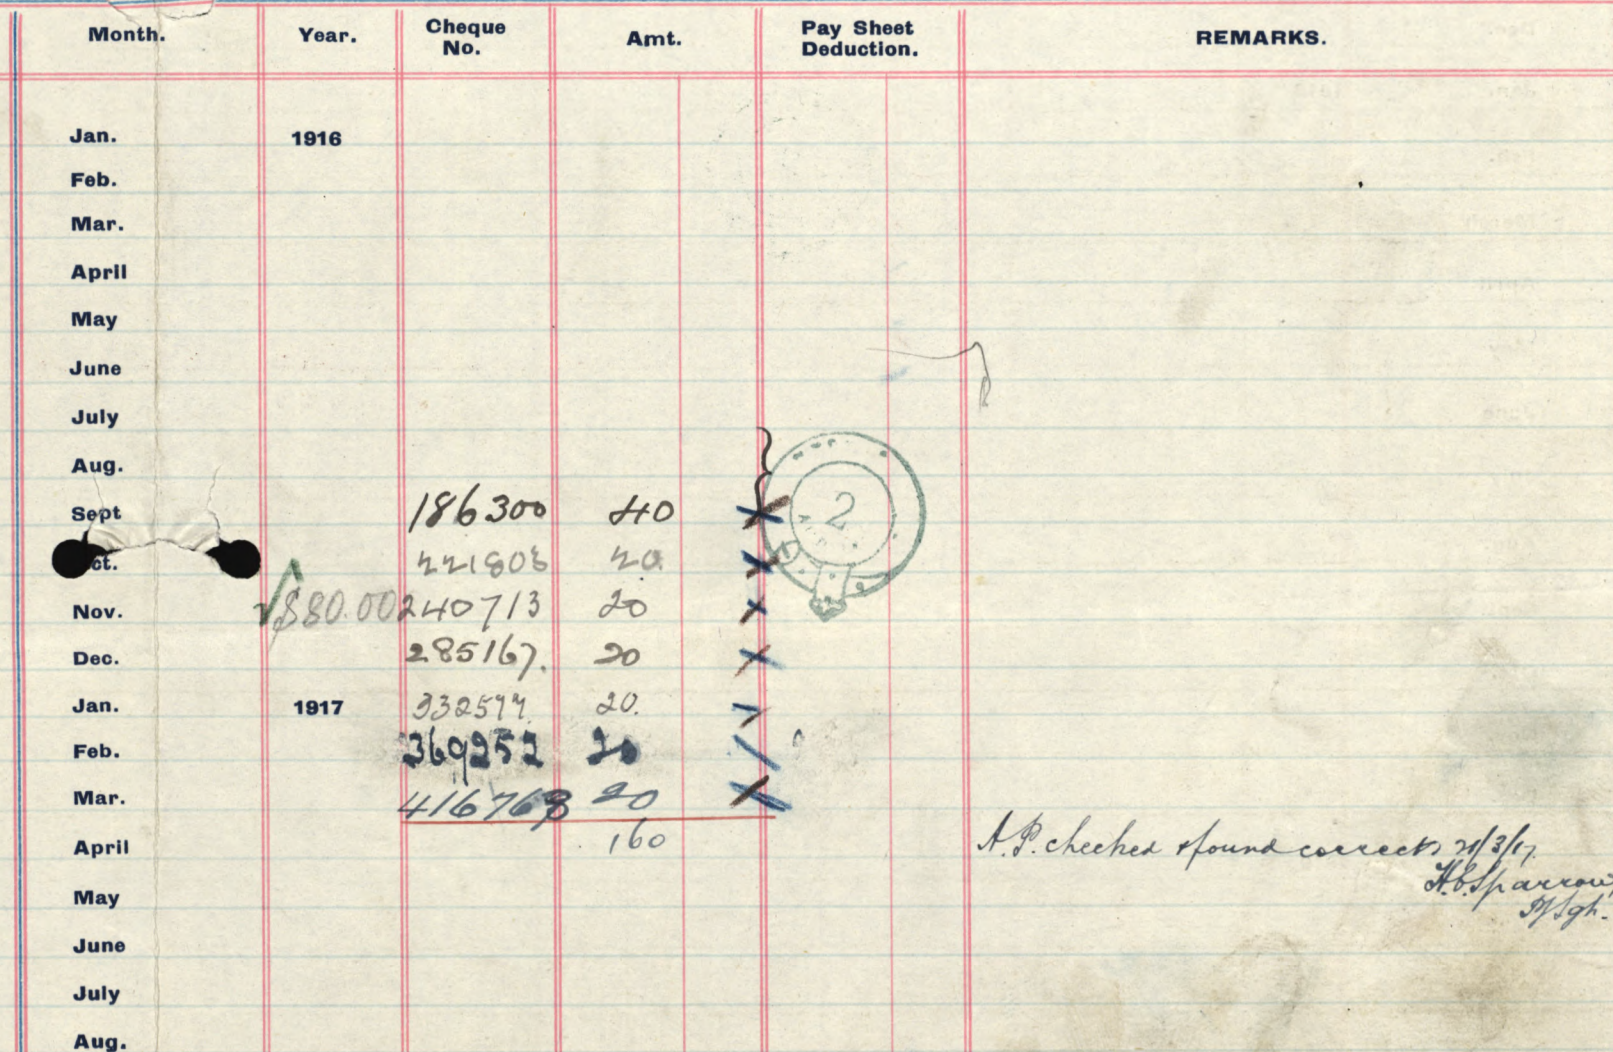 Month. Year. Cheque No. Amt. Pay Sheet Deduction. REMARKS.
Jan. 1916
Feb.
Mar.
April
May
June
July
Aug.
Sept 186300 40
ct. 20
Nov. $80.00 240713 20
Dec. 285167. 20
Jan. 1917 20.
Feb. 369252 20
Mar. 20
April 160 A.P. checked & found correct /3/17
May H.C. Sparrow
June
July
Aug.
2